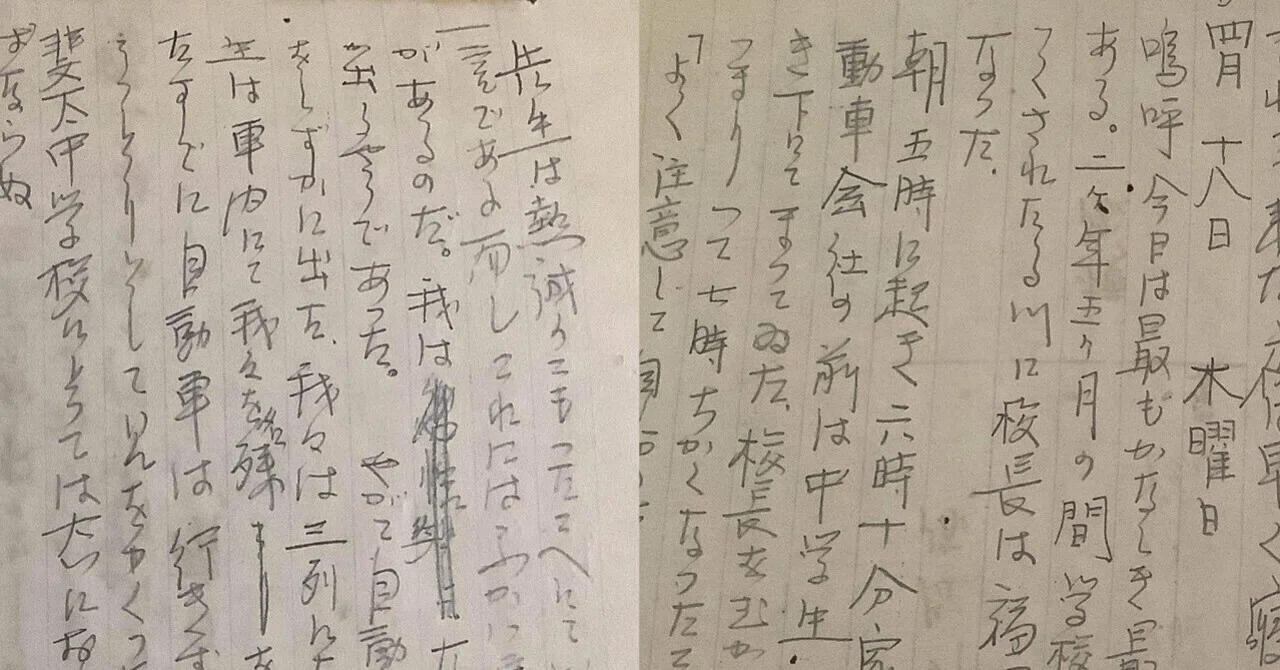 四月 十八日 木曜日
嗚呼 今日は最もかなしき最
ある。二ヶ年五ヶ月の間学校
つくされたる川に校長は福
なつた。
朝五時に起きて六時十分家
動車会社の前は中学生
き下にてまつてゐた、校長をむか
つて七時ちかくなつたて
「よく注意して
先生は熱誠のこもつたこへにて
一言である而しこれにはふかい
があるのだ。我は
出るやうであつた。 やがて自動
をしずかに出た、我々は三列に
生は車内にて我々を名残 を
たすでに自動車は行きす
うつとりとして
斐太中学校にとつては大にお
ずならぬ